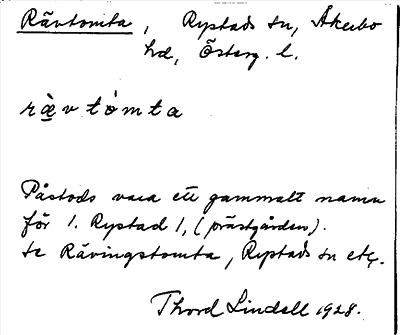 Rävtomta, Rystads sn, Åkerbo
hd, Österg. l.
rævtòmta
Påstods vara ett gammalt namn
för 1. Rystad 1, (prästgården).
se Rävingstomta, Rystads sn etc.
Thord Lindell 1928.